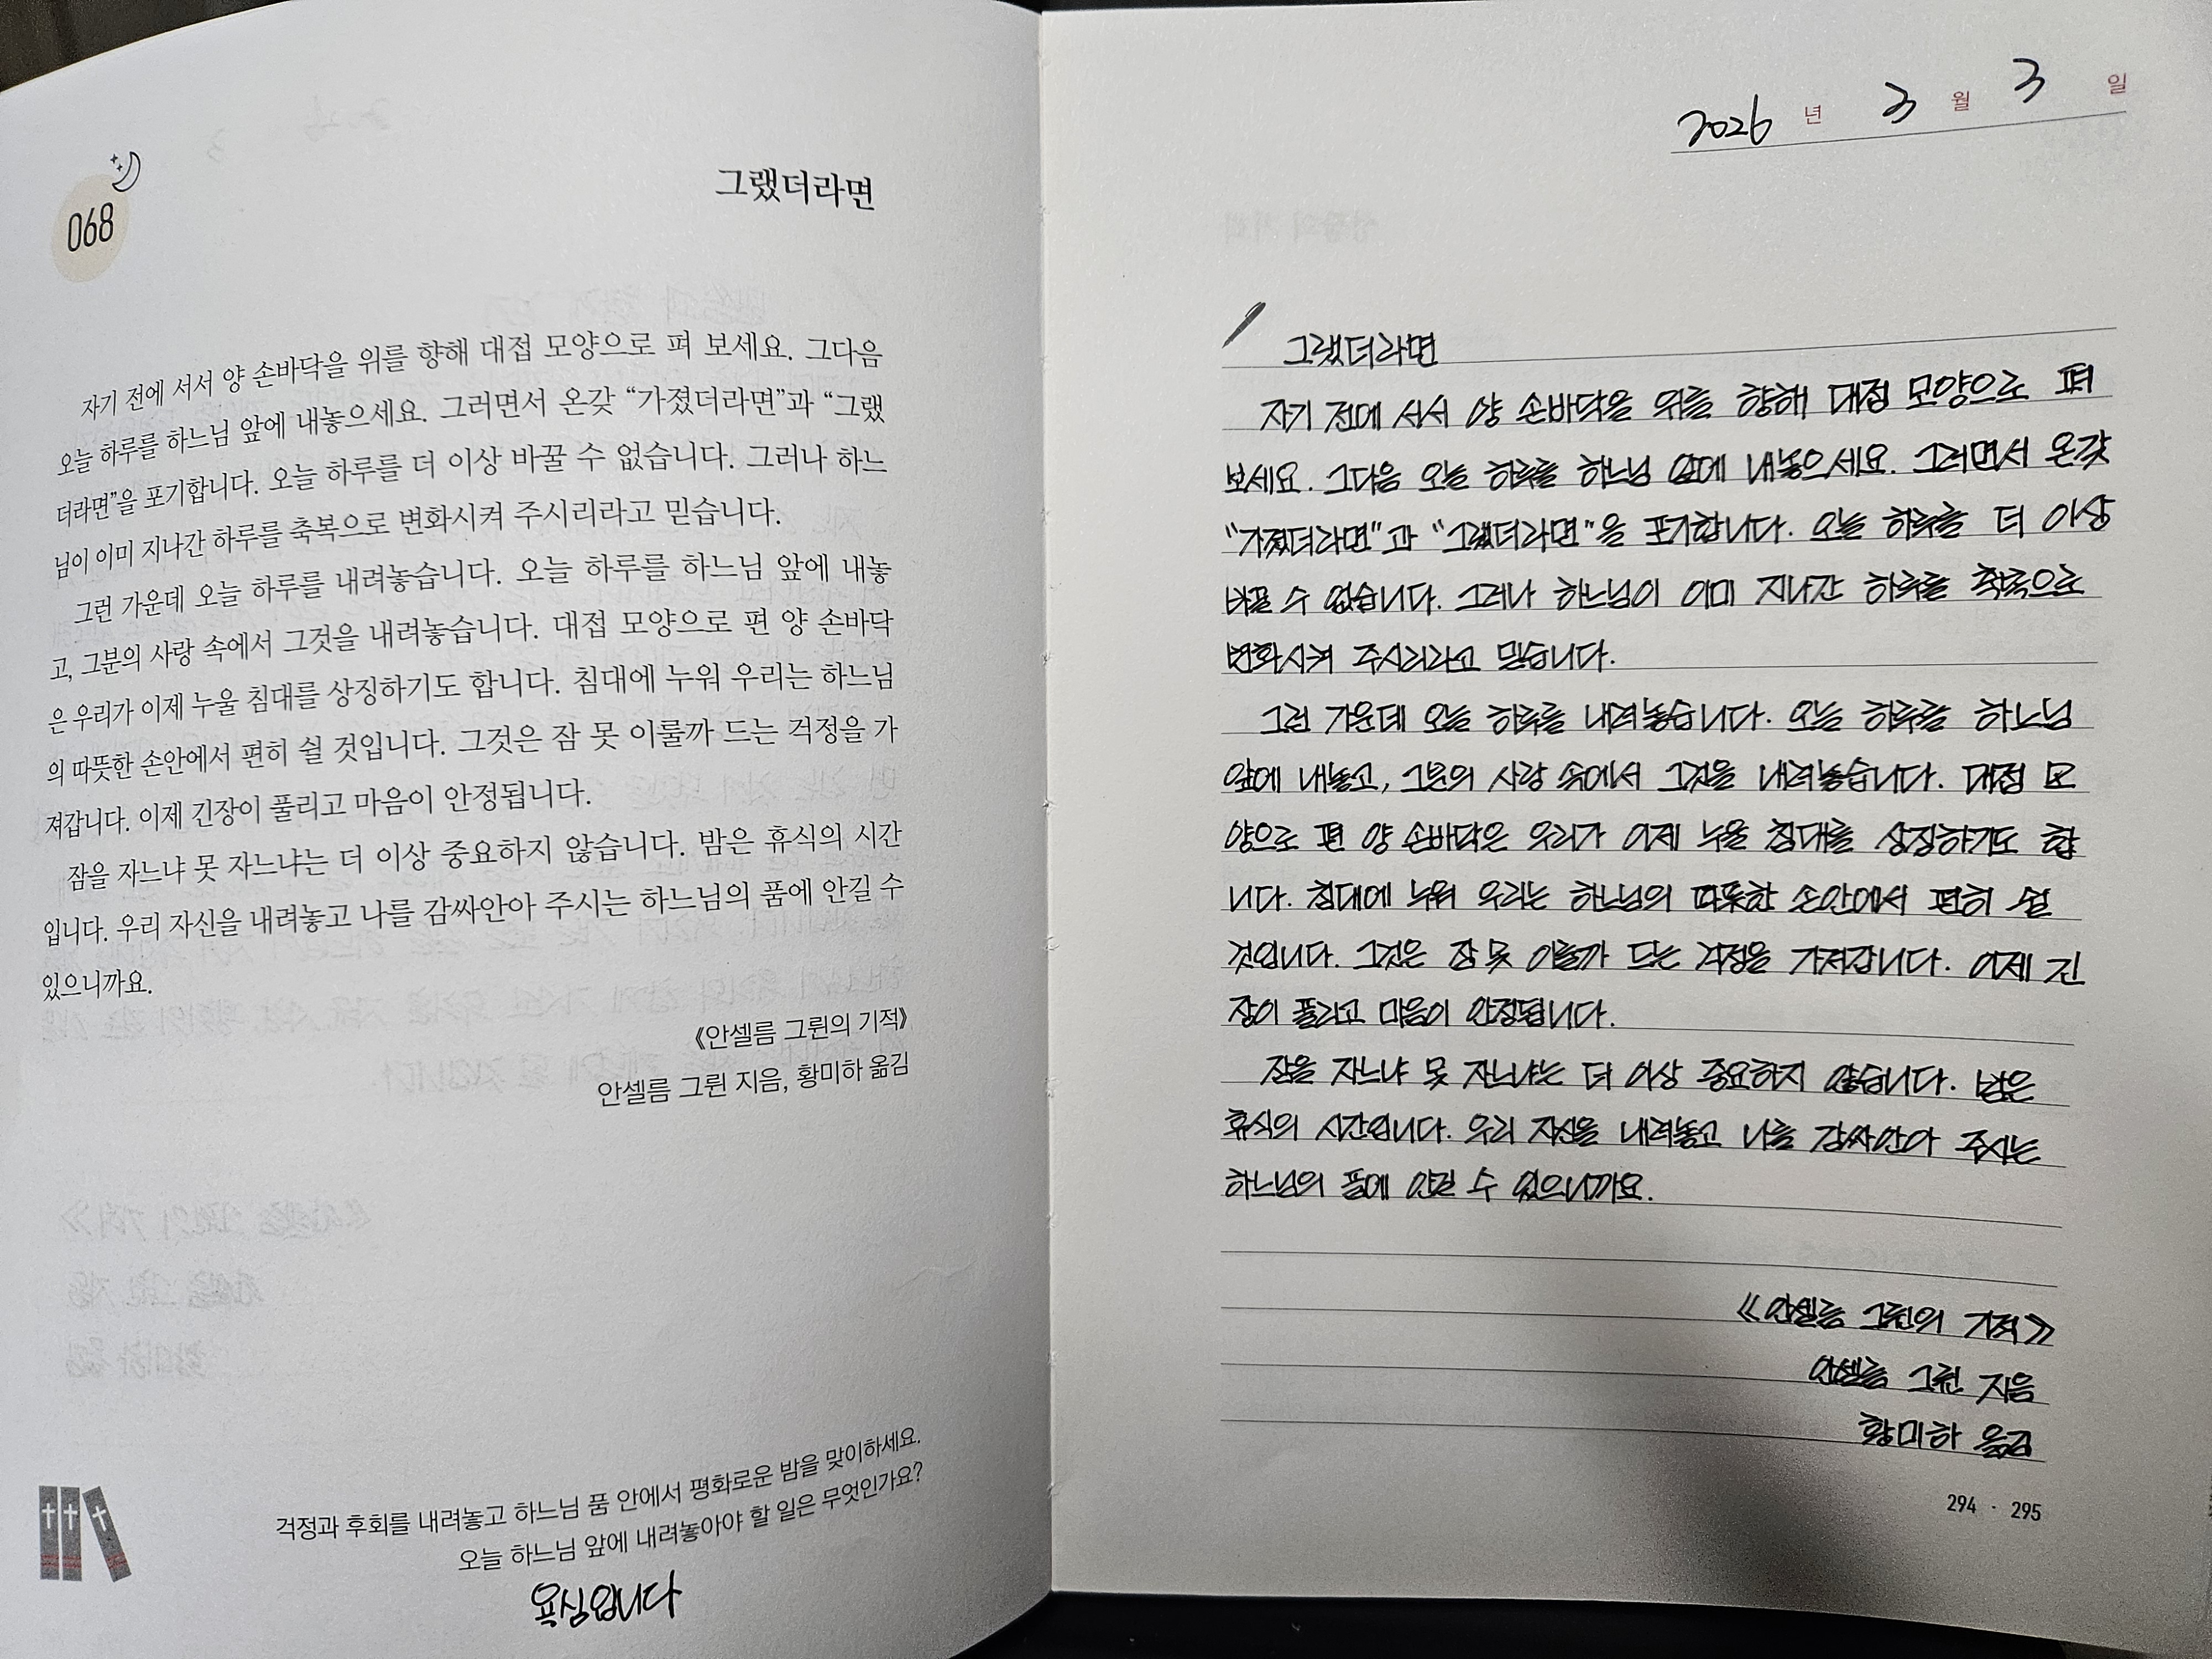 068
그랬더라면
자기 전에 서서 양 손바닥을 위를 향해 대접 모양으로 펴 보세요. 그다음
오늘 하루를 하느님 앞에 내놓으세요. 그러면서 온갖 “가졌더라면”과 “그랬
더라면”을 포기합니다. 오늘 하루를 더 이상 바꿀 수 없습니다. 그러나 하느
님이 이미 지나간 하루를 축복으로 변화시켜 주시리라고 믿습니다.
그런 가운데 오늘 하루를 내려놓습니다. 오늘 하루를 하느님 앞에 내놓
고, 그분의 사랑 속에서 그것을 내려놓습니다. 대접 모양으로 편 양 손바닥
은 우리가 이제 누울 침대를 상징하기도 합니다. 침대에 누워 우리는 하느님
의 따뜻한 손안에서 편히 쉴 것입니다. 그것은 잠 못 이룰까 드는 걱정을 가
져갑니다. 이제 긴장이 풀리고 마음이 안정됩니다.
잠을 자느냐 못 자느냐는 더 이상 중요하지 않습니다. 밤은 휴식의 시간
입니다. 우리 자신을 내려놓고 나를 감싸안아 주시는 하느님의 품에 안길 수
있으니까요.
《안셀름 그륀의 기적》
안셀름 그륀 지음, 황미하 옮김
걱정과 후회를 내려놓고 하느님 품 안에서 평화로운 밤을 맞이하세요.
오늘 하느님 앞에 내려놓아야 할 일은 무엇인가요?
욕심입니다
2026 년 3 월 3 일
그랬더라면
자기 전에 서서 양 손바닥을 위를 향해 대접 모양으로 펴
보세요. 그다음 오늘 하루를 하느님 앞에 내놓으세요. 그러면서 온갖
“가졌더라면”과 “그랬더라면”을 포기합니다. 오늘 하루를 더 이상
바꿀 수 없습니다. 그러나 하느님이 이미 지나간 하루를 축복으로
변화시켜 주시리라고 믿습니다.
그런 가운데 오늘 하루를 내려놓습니다. 오늘 하루를 하느님
앞에 내놓고, 그분의 사랑 속에서 그것을 내려놓습니다. 대접 모
양으로 편 양 손바닥은 우리가 이제 누울 침대를 상징하기도 합
니다. 침대에 누워 우리는 하느님의 따뜻한 손안에서 편히 쉴
것입니다. 그것은 잠 못 이룰까 드는 걱정을 가져갑니다. 이제 긴
장이 풀리고 마음이 안정됩니다.
잠을 자느냐 못 자느냐는 더 이상 중요하지 않습니다. 밤은
휴식의 시간입니다. 우리 자신을 내려놓고 나를 감싸안아 주시는
하느님의 품에 안길 수 있으니까요.
《안셀름 그륀의 기적》
안셀름 그륀 지음
황미하 옮김
294 · 295